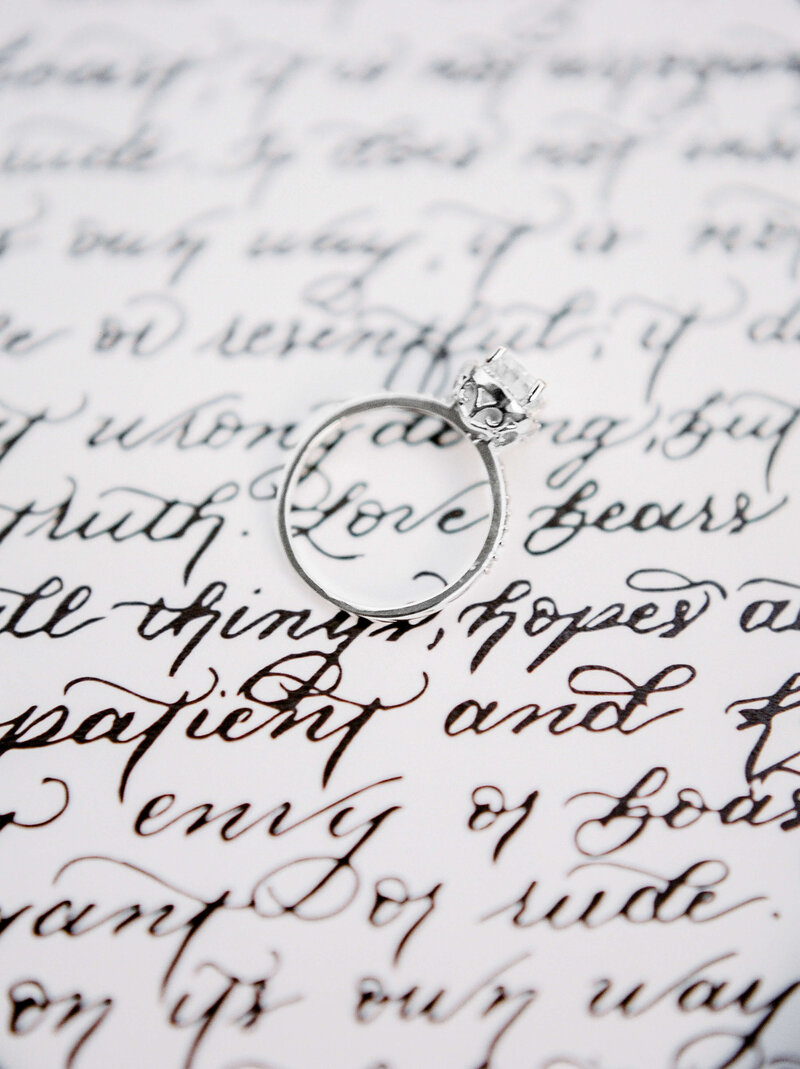 boast; it is not arrogan
rude. It does not insi
s own way, it is not
le or resentful; it do
at wrongdoing, but
truth. Love bears
all things, hopes al
patient and k
envy or boas
gant or rude.
on its own way